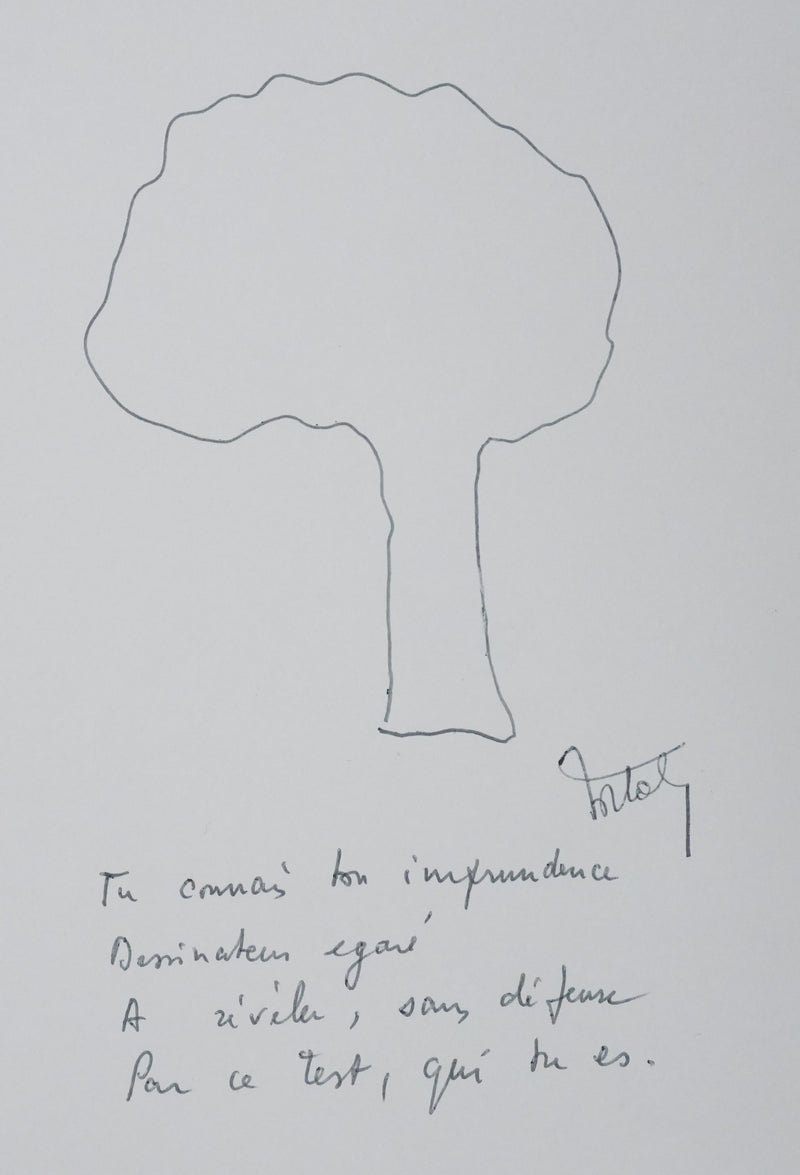 Tu connais ton imprundence
Dessinateur egaré
A révéler, sans défense
Par ce test, qui tu es.